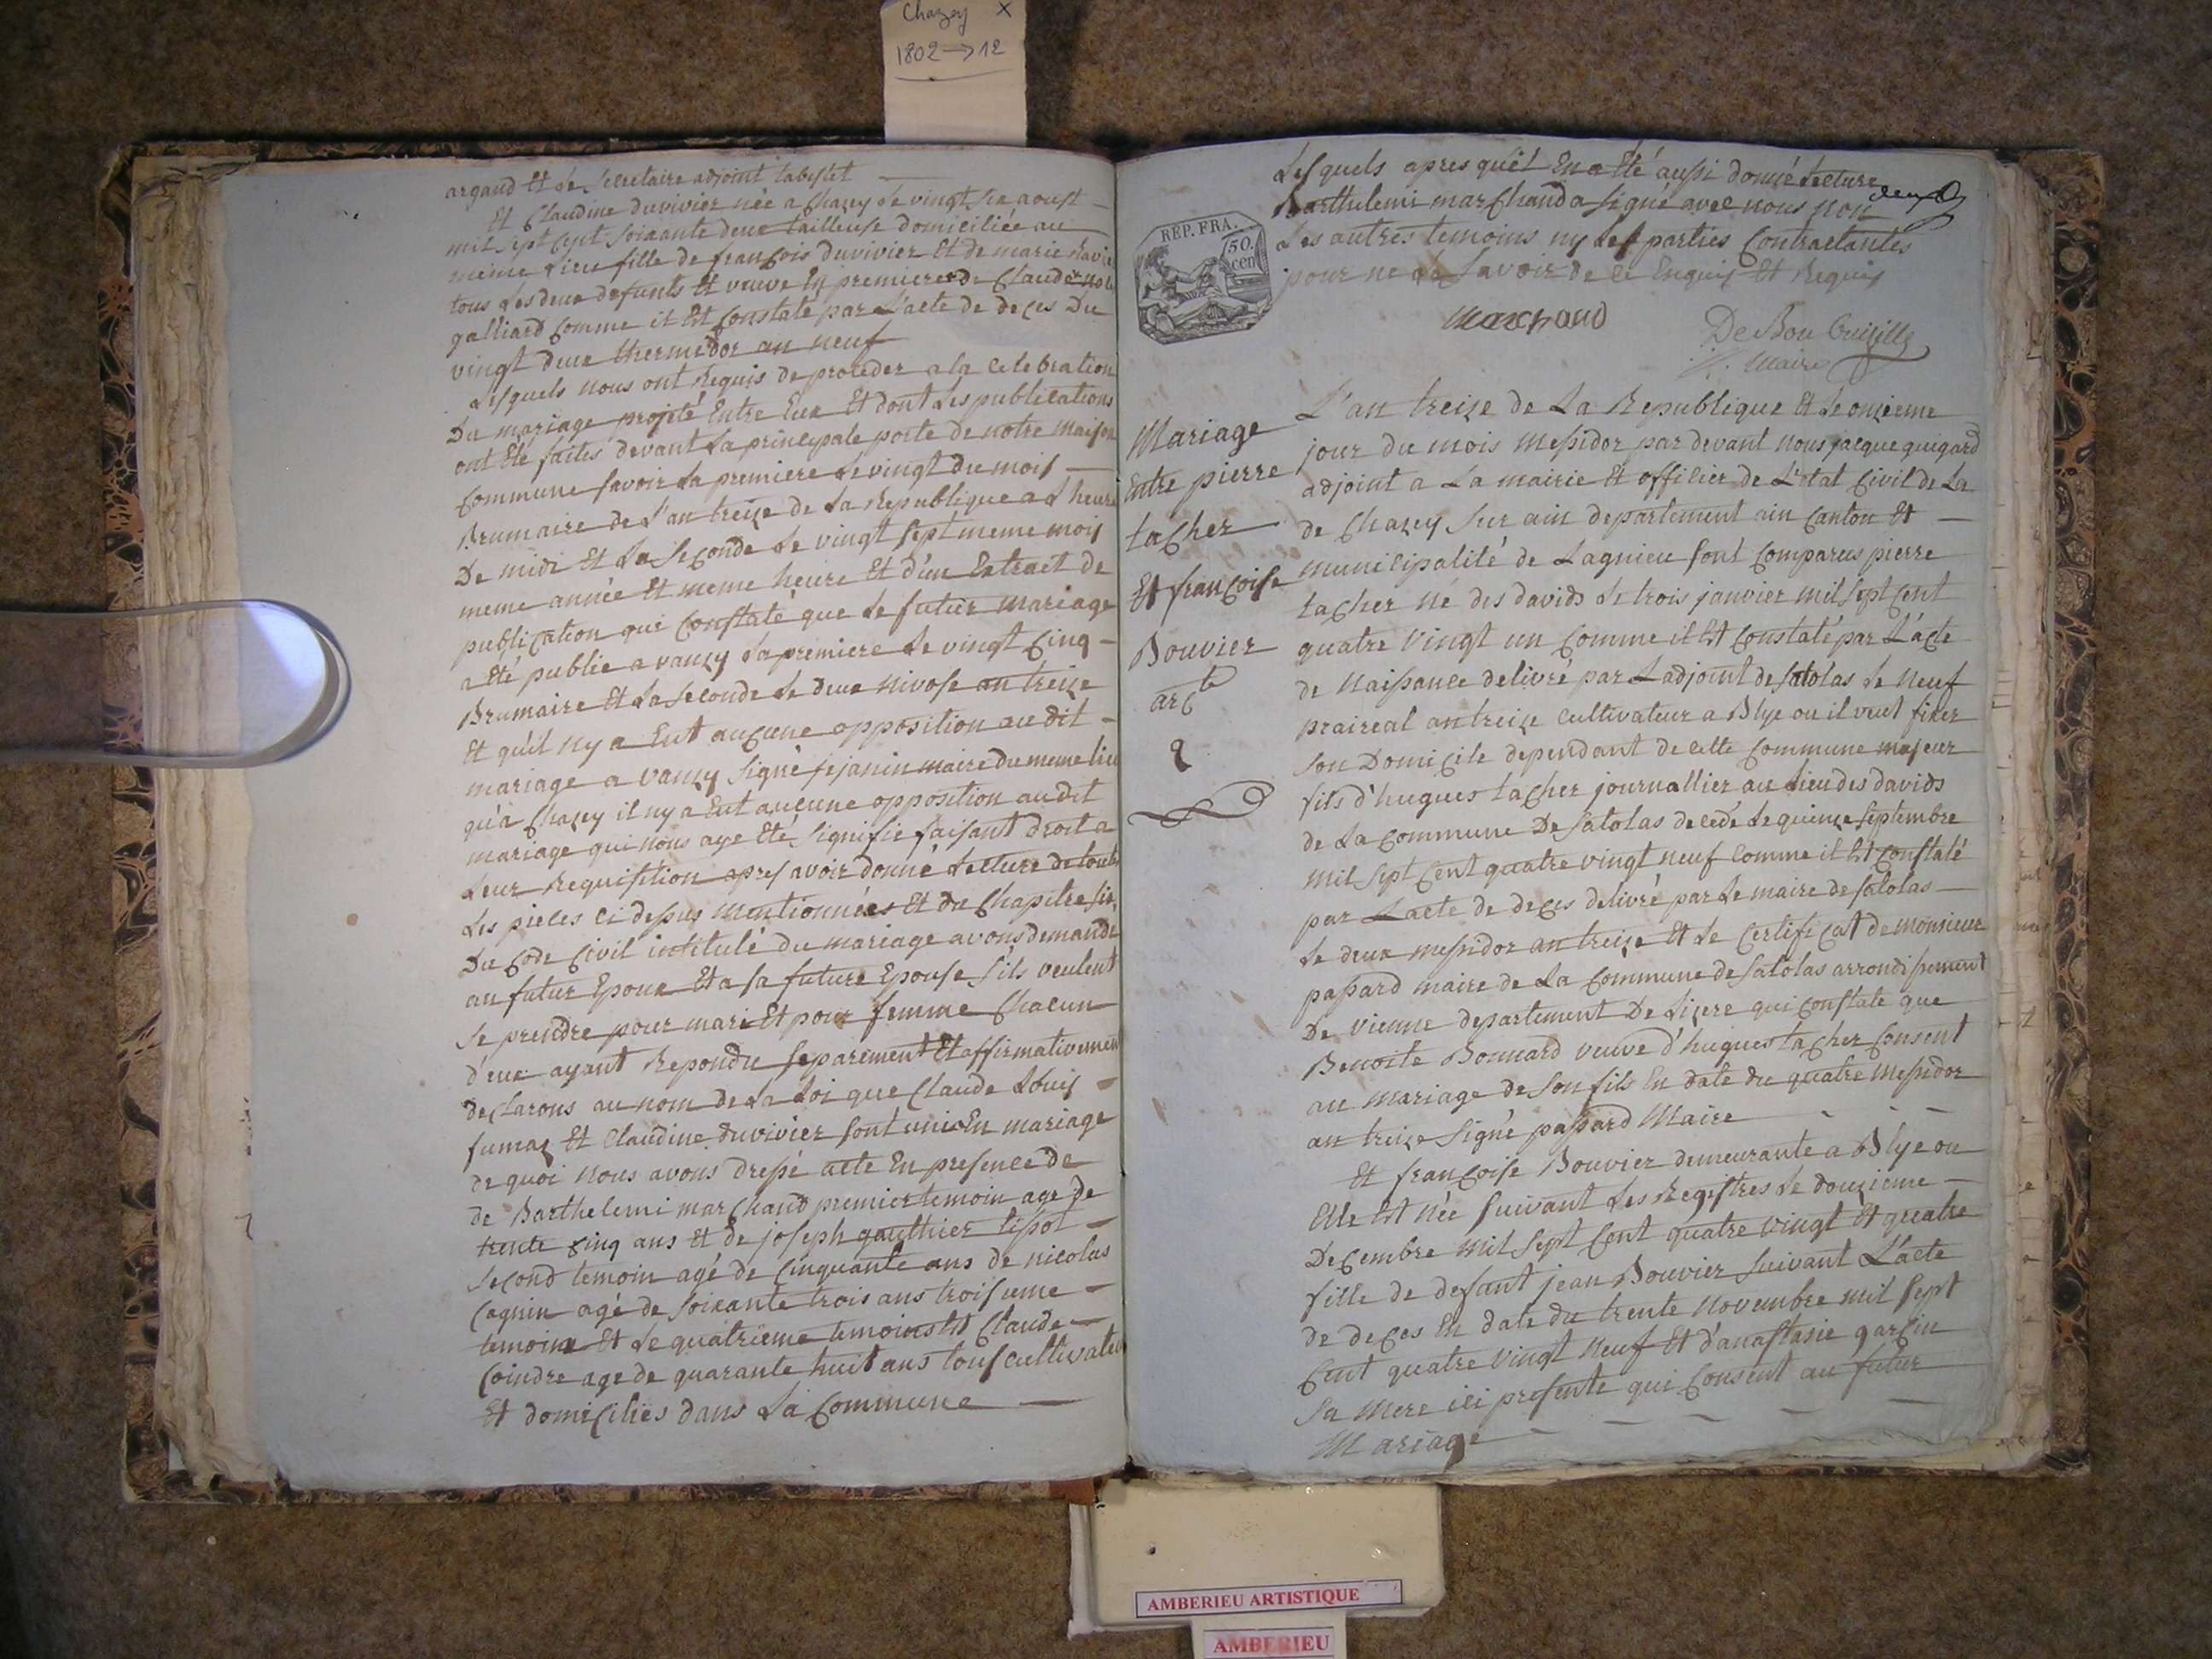 Chazey X
1802 → 12
argand Et de Secretaire adjoint tabestet
Et Claudine duvivier née a Chazey Le vingt six aoust
mil sept Cent soixante deux tailleuse domiciliée au
meme Lieu fille de françois duvivier Et de marie
tous Les deux defunts Et veuve En premiere de Claude
galliard Comme il Est Constaté par L'acte de deces Du
vingt deux thermidor an neuf
Lesquels nous ont Requis de proceder a la Celebration
Du mariage projeté Entre Eux Et dont Les publications
ont Eté faites devant La principale porte de notre Maison
Commune savoir La premiere Le vingt du mois
Brumaire de L'an treize de La Republique a L heure
De midi Et La Seconde Le vingt Sept meme mois
meme année Et meme heure Et d'un Extrait de
publication qui Constate que Le futur mariage
a Eté publié a vauzy La premiere Le vingt Cinq
Brumaire Et La Seconde Le deux Nivose an treize
Et qu'il ny a Eut auCune opposition au dit
mariage a vauzy Signé jejanin maire du meme lieu
qu'a Chazey il ny a Eut aucune opposition au dit
mariage qui nous aye Eté Signifie faisant droit a
Leur Requisition apres avoir donné Lecture de toutes
Les pieces ci dessus Mentionnées Et du Chapitre six
Du Code Civil intitulé Du mariage avons demandé
au futur Epoux Et a sa future Epouse S'ils veulent
Se prendre pour mari Et pour femme Chacun
d'eux ayant Repondu Separement Et affirmativement
deClarons au nom de La Loi que Claude Louis
fumaz Et Claudine duvivier Sont unis En mariage
de quoi Nous avons dressé acte En presence de
de Barthelemi marChand premier temoin age de
trente Cinq ans Et de joseph gauthier tissot
SeCond temoin agé de Cinquante ans de nicolas
Cagnin agé de Soixante trois ans troisieme
temoin Et Le quatrieme temoins Est Claude
Coindre age de quarante huit ans tous Cultivateurs
Et domiciliés dans La Commune
Lesquels apres qu'il En a Eté aussi donné Lecture
Barthelemi marChand a Signé avec nous non
Les autres temoins ny Les parties Contractantes
pour ne Le Savoir de Ce Enquis Et Requis
REP. FRA.
50.
cen
Marchand
Maire
Mariage
Entre pierre
taCher
Et françoise
Bouvier
L'an treize de La Republique Et Le onzieme
jour du mois Messidor par devant Nous jacque guigard
adjoint a La mairie Et officier de L'etat Civil de La
de Chazey Sur ain departement ain Canton Et
municipalité de Lagnieu Sont Comparus pierre
taCher né des davids Le trois janvier mil Sept Cent
quatre Vingt un Comme il Est Constaté par L'acte
de Naissance delivré par L adjoint de Satolas Le Neuf
praireal an treize Cultivateur a Blye ou il veut fixer
Son Domicile dependant de cette Commune majeur
fils d'hugues taCher journallier au Lieu des davids
de La Commune De Satolas decedé Le quinze Septembre
Mil Sept Cent quatre vingt neuf Comme il Est Constaté
par Lacte de deces delivré par Le maire de Satolas
Le deux Messidor an treize Et Le Certificat de Monsieur
passard maire de La Commune de Satolas arrondissement
De Vienne departement De Lizere qui Constate que
Benoite Bonnard veuve d'hugues taCher Consent
au mariage de Son fils En date du quatre Messidor
an treize Signé passard Maire
Et françoise Bouvier demeurante a Blye ou
Elle Est née Suivant Les Registres Le douzieme
DeCembre Mil Sept Cent quatre vingt Et quatre
fille de defunt jean Bouvier Suivant L'acte
de deCes En date du trente Novembre Mil Sept
Cent quatre Vingt Neuf Et d'anastasie garCin
Sa Mere ici presente qui Consent au futur
Mariage
AMBERIEU ARTISTIQUE
AMBERIEU